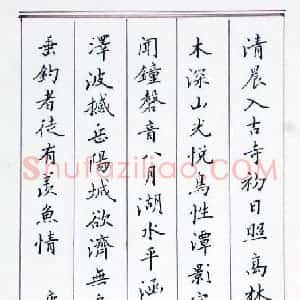 清晨入古寺初日照高林
木深山光悦鳥性潭影
聞鐘磬音八月湖水平涵
澤波撼岳陽城欲濟無
垂釣者徒有羨魚情
Shufaziliao.com